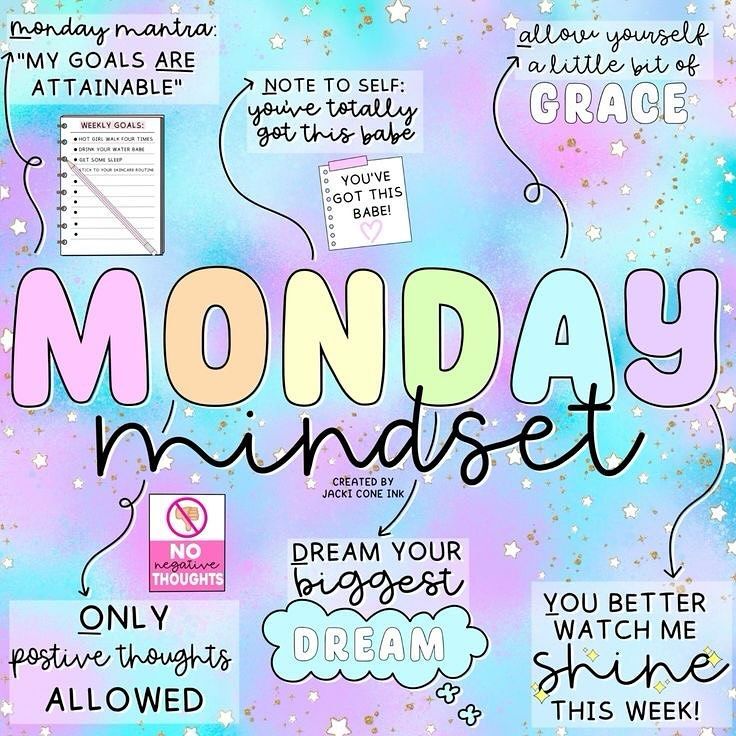 monday mantra:
"MY GOALS ARE
ATTAINABLE"
WEEKLY GOALS:
• HOT GIRL WALK FOUR TIMES
• DRINK YOUR WATER BABE
• GET SOME SLEEP
STICK TO YOUR SKINCARE ROUTINE
NOTE TO SELF:
you've totally
got this babe
YOU'VE
GOT THIS
BABE!
allow yourself
a little bit of
GRACE
MONDAY
mindset
CREATED BY
JACKI CONE INK
NO
negative
THOUGHTS
ONLY
postive thoughts
ALLOWED
DREAM YOUR
biggest
DREAM
YOU BETTER
WATCH ME
shine
THIS WEEK!